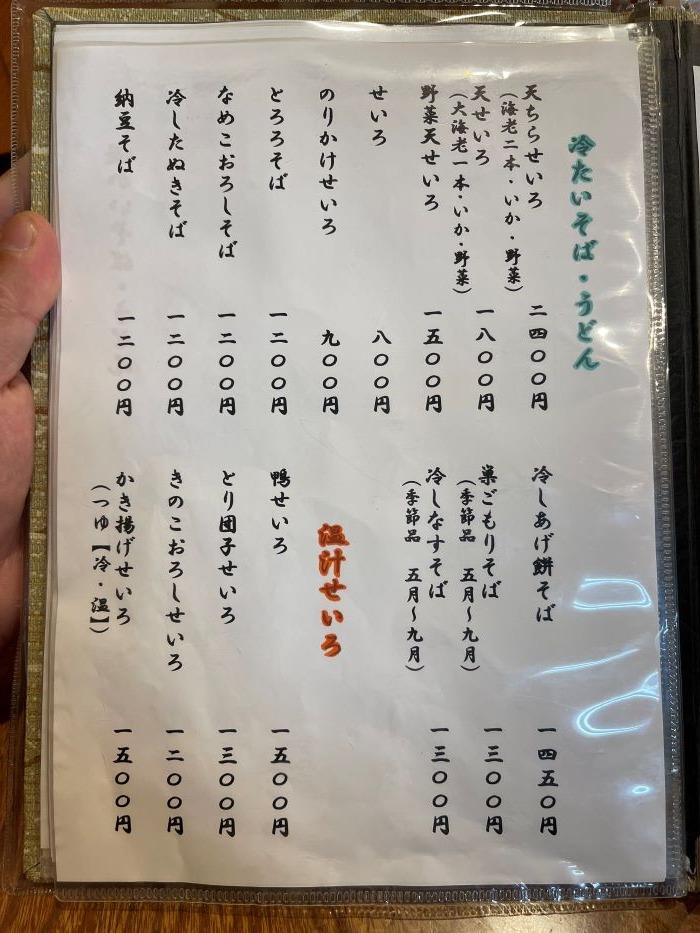 冷たいそば・うどん
天ちらせいろ
(海老二本・いか・野菜)
二四〇〇円
天せいろ
(大海老一本・いか・野菜)
一八〇〇円
野菜天せいろ
一五〇〇円
せいろ
八〇〇円
のりかけせいろ
九〇〇円
とろろそば
一二〇〇円
なめこおろしそば
一二〇〇円
冷したぬきそば
一二〇〇円
納豆そば
一二〇〇円
冷しあげ餅そば
一四五〇円
巣ごもりそば
(季節品 五月〜九月)
一三〇〇円
冷しなすそば
(季節品 五月〜九月)
一三〇〇円
温汁せいろ
鴨せいろ
一五〇〇円
とり団子せいろ
一三〇〇円
きのこおろしせいろ
一二〇〇円
かき揚げせいろ
(つゆ【冷・温】)
一五〇〇円